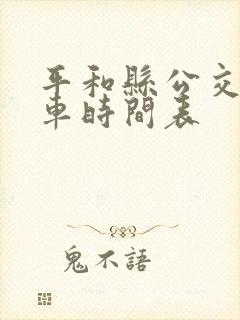 平和縣公交
車時間表
鬼不語